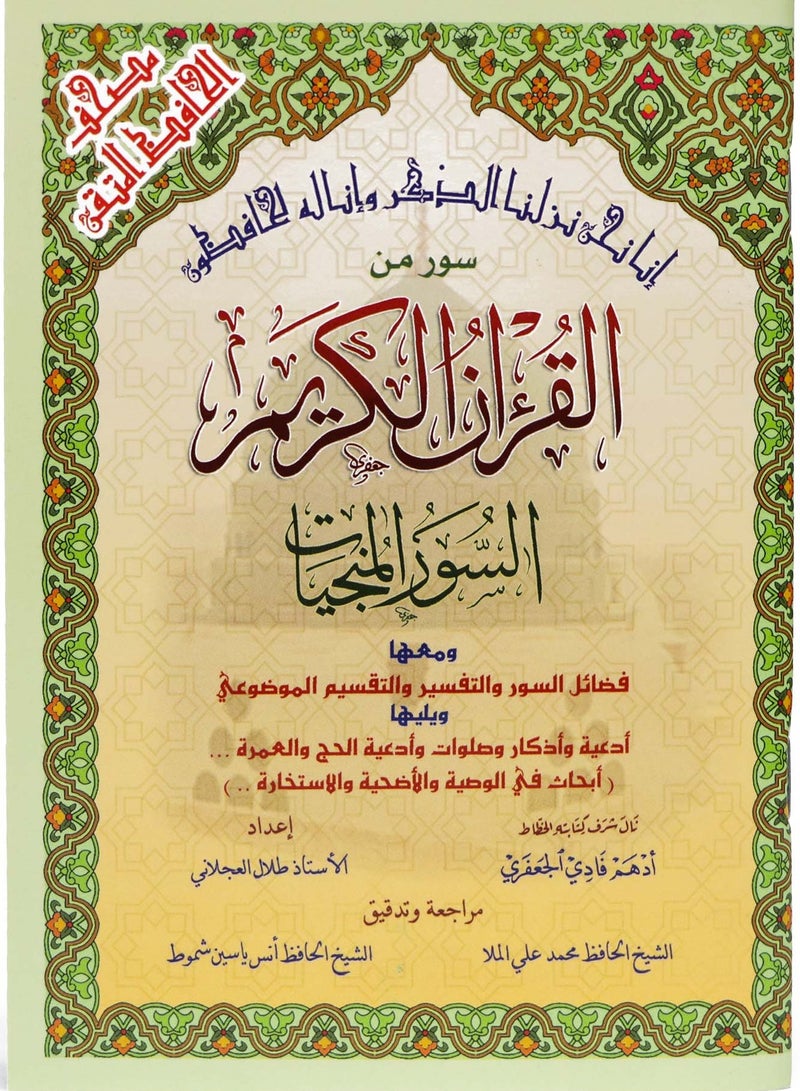 مصحف
الحافظ المتقن
إنا نحن نزلنا الذكر وإنا له لحافظون
سور من
القُرْءَانُ الكَرِيم
جعفري
السُّوَرُ المُنجيَات
جعفري
ومعها
فضائل السور والتفسير والتقسيم الموضوعي
ويليها
أدعية وأذكار وصلوات وأدعية الحج والعمرة ...
( أبحاث في الوصية والأضحية والاستخارة .. )
نَالَ شَرَفَ كِتَابَتِهِ الخَطَّاط
أدْهَمْ فَادِيْ الجَعْفَرِيْ
إعداد
الأستاذ طلال العجلاني
مراجعة وتدقيق
الشيخ الحافظ محمد علي الملا
الشيخ الحافظ أنس ياسين شموط